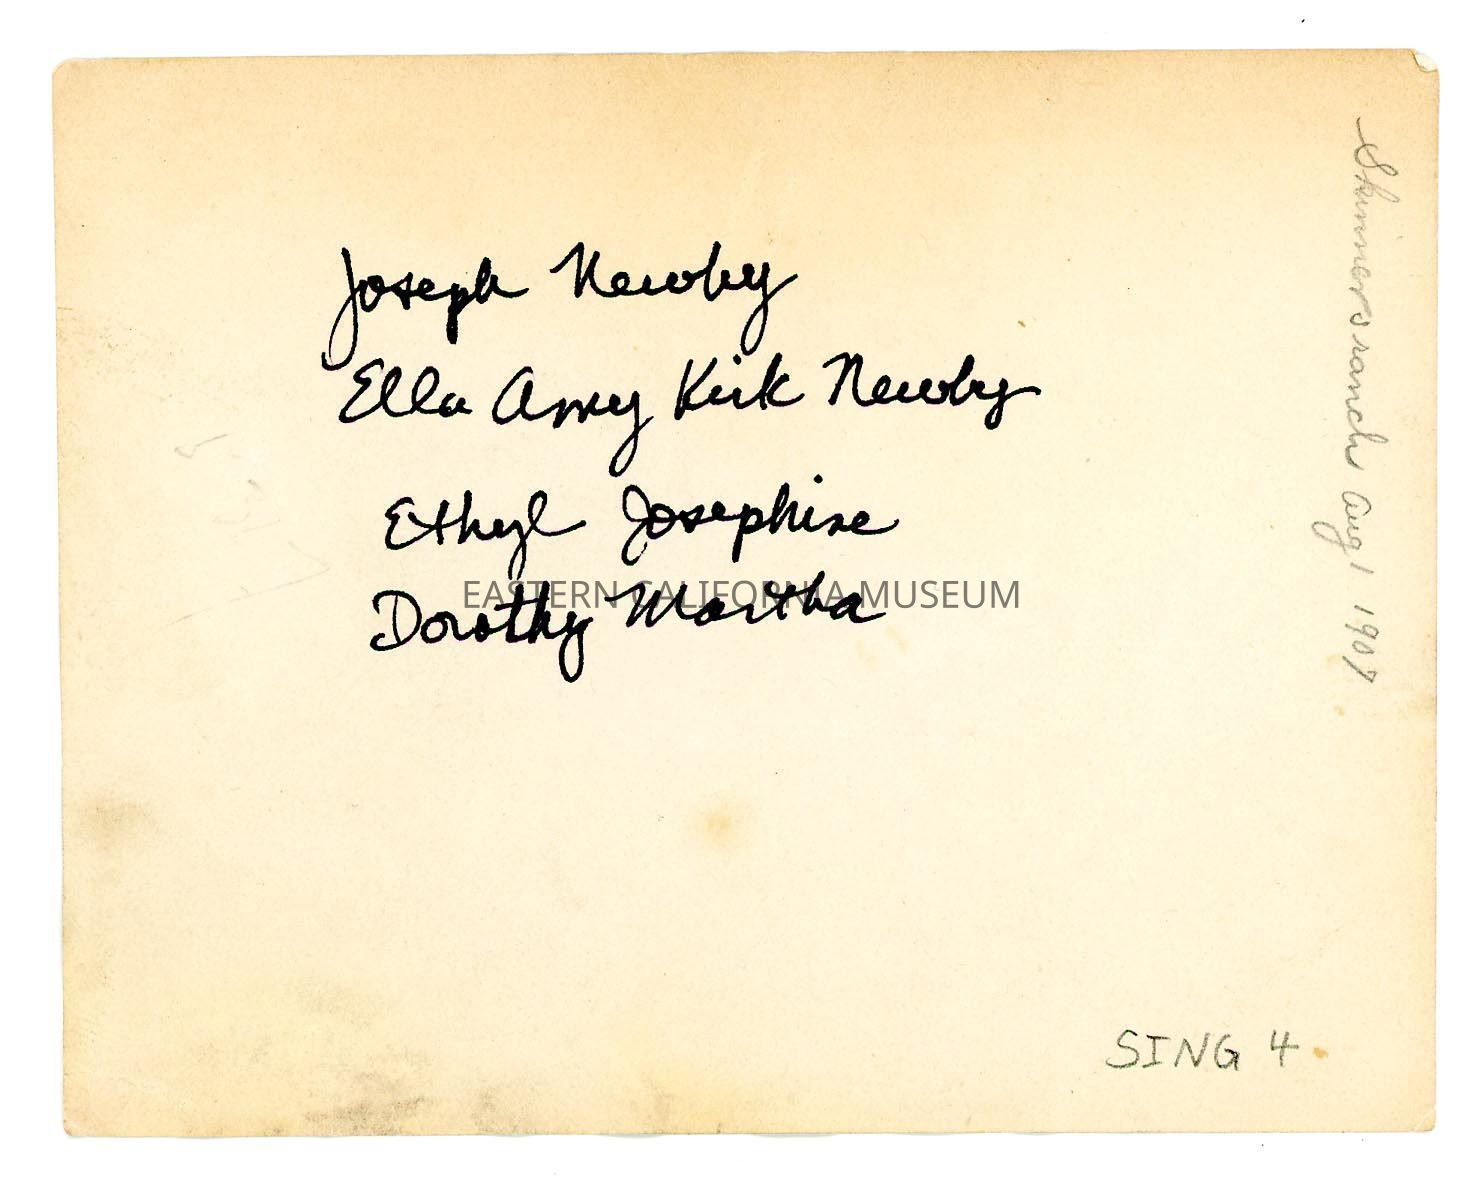 Joseph Newby
Ella Amy Kirk Newby
Ethyl Josephine
Dorothy Martha
EASTERN CALIFORNIA MUSEUM
Skinners ranch Aug 1 1907
SING 4